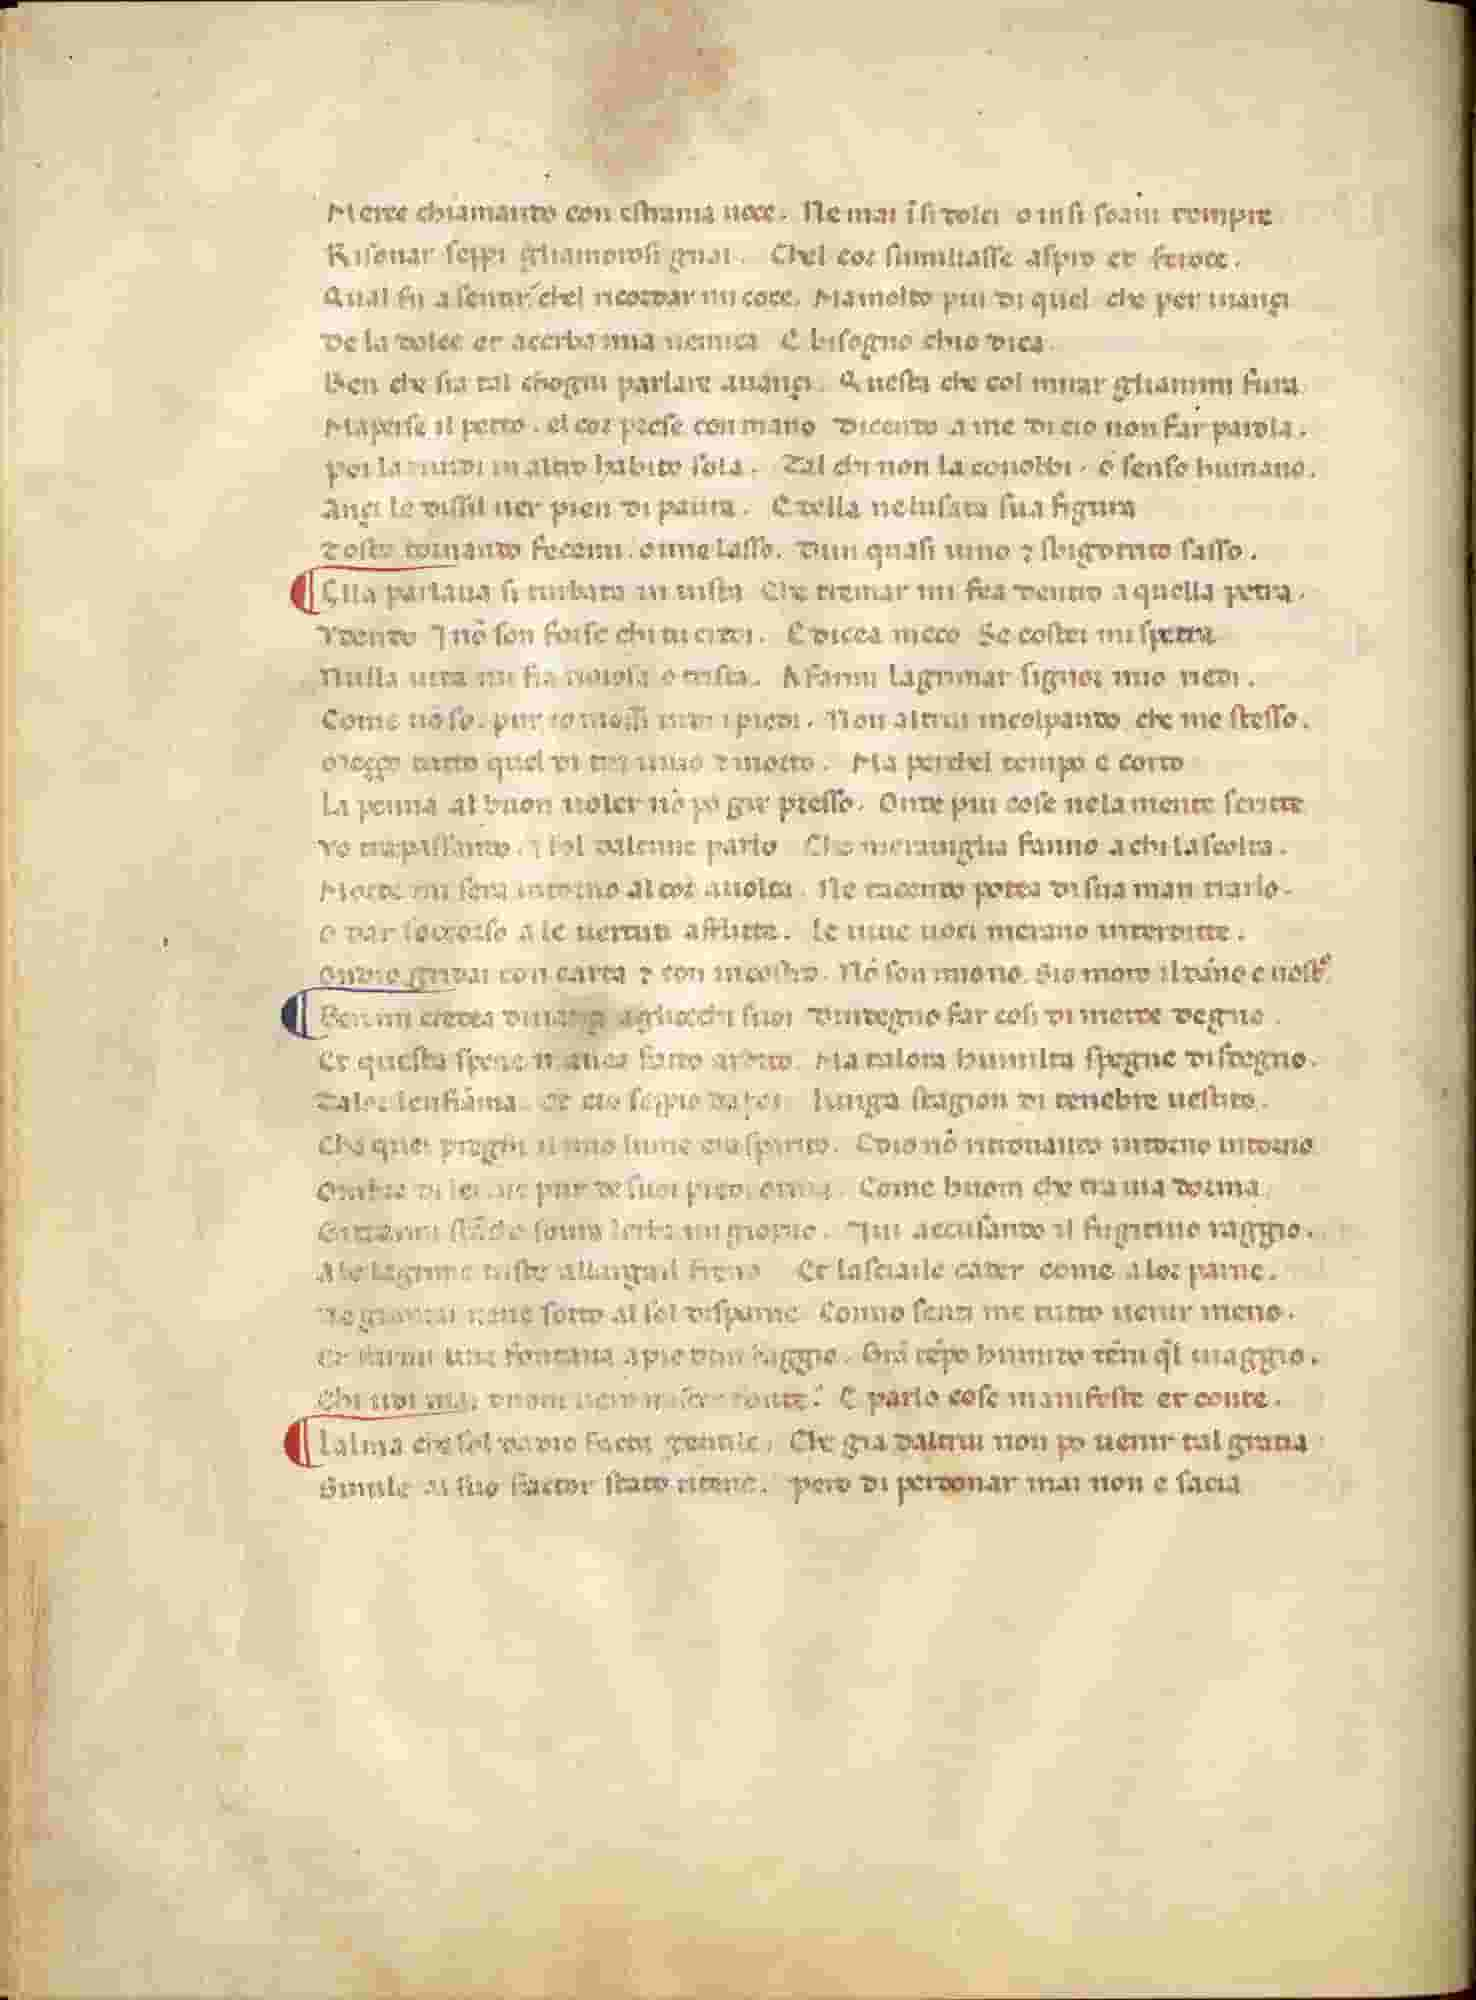 Merce chiamando con estrania uoce. Ne mai ī si dolci o in si soaui tempre
Risonar seppi gliamorosi guai. Chel cor sumiliasse aspro et feroce.
Qual fu a sentir chel ricordar mi coce. Ma molto piu di quel che per inançi
De la dolce et acerba mia nemica E bisogno chio dica.
Ben che sia tal chogni parlare auançi. Questa che col mirar glianimi fura
Maperse il petto. el cor prese con mano Dicendo a me di cio non far parola.
Poi la riuidi in altro habito sola. Tal chi non la conobbi. o senso humano.
Ançi le dissil uer pien di paura. Et ella ne lusata sua figura
Tosto tornando fecemi. oime lasso. Dun quasi uiuo ⁊ sbigottito sasso.
Ella parlaua si turbata in uista Che tremar mi fea dentro a quella petra.
Vdendo I nō son forse chi tu credi. E dicea meco Se costei mi spetra
Nulla uita mi fia noiosa o trista. A farmi lagrimar signor mio riedi.
Come nō so. pur io mossi indi i piedi. Non altrui incolpando che me stesso.
Meççо tutto quel di tra uiuo ⁊ morto. Ma perchel tempo e corto
La penna al buon uoler nō po gir presso. Onde piu cose ne la mente scritte
Vo trapassando. ⁊ sol dalcune parlo Che merauiglia fanno a chi lascolta.
Morte mi sera intorno al cor auolta. Ne tacendo potea di sua man trarlo.
O dar soccorso a le uertuti afflitte. Le uiue uoci merano interditte.
Ondio gridai con carta ⁊ con incostro. Nō son mio no. Sio moro il dāno e uostº.
Ben mi credea dinançi agliocchi suoi Dindegno far cosi di merce degno.
Et questa spene mauea fatto ardito. Ma talora humilta spegne disdegno.
Talor lenfiāma. et cio seppio da poi lunga stagion di tenebre uestito.
Cha quei preghi il mio lume era sparito. Edio nō ritrouando intorno intorno
Ombra di lei. ne pur de suoi piedi orma. Come huom che tra uia dorma
Gittaimi stācho soura lerba un giorno. Iui accusando il fugitiuo raggio.
A le lagrime triste allargai il freno Et lasciaile cader come a lor parue.
Ne giamai neue sotto al sol disparue Comio senti me tutto uenir meno.
Et farmi una fontana a pie dun faggio. Grā tēpo humido tēni q̄l uiaggio.
Chi udi mai dhuom uero nascer fonte? E parlo cose manifeste et conte.
Lalma che sol da dio facta gentile. Che gia daltrui non po uenir tal gratia
Simile al suo factor stato ritene. pero di perdonar mai non e sacia